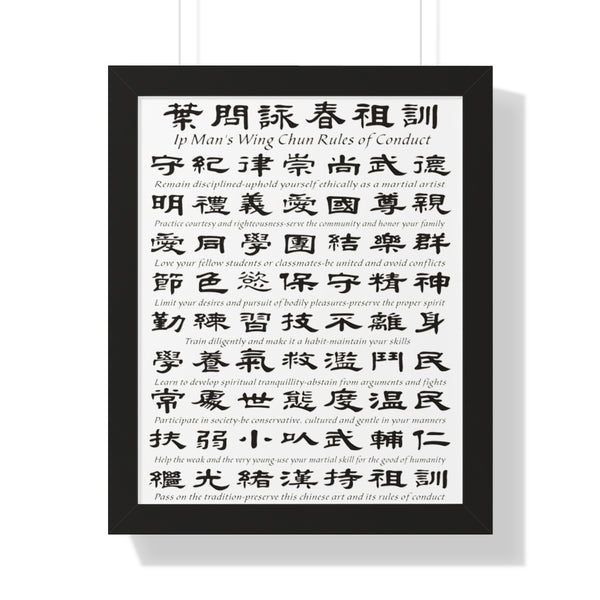 葉問詠春祖訓
Ip Man's Wing Chun Rules of Conduct
守紀律崇尚武德
Remain disciplined-uphold yourself ethically as a martial artist
明禮義愛國尊親
Practice courtesy and righteousness-serve the community and honor your family
愛同學團結樂群
Love your fellow students or classmates-be united and avoid conflicts
節色慾保守精神
Limit your desires and pursuit of bodily pleasures-preserve the proper spirit
勤練習技不離身
Train diligently and make it a habit-maintain your skills
學養氣救濫鬥民
Learn to develop spiritual tranquillity-abstain from arguments and fights
常處世態度温民
Participate in society-be conservative. cultured and gentle in your manners
扶弱小以武輔仁
Help the weak and the very young-use your martial skill for the good of humanity
繼光緒漢持祖訓
Pass on the tradition-preserve this chinese art and its rules of conduct